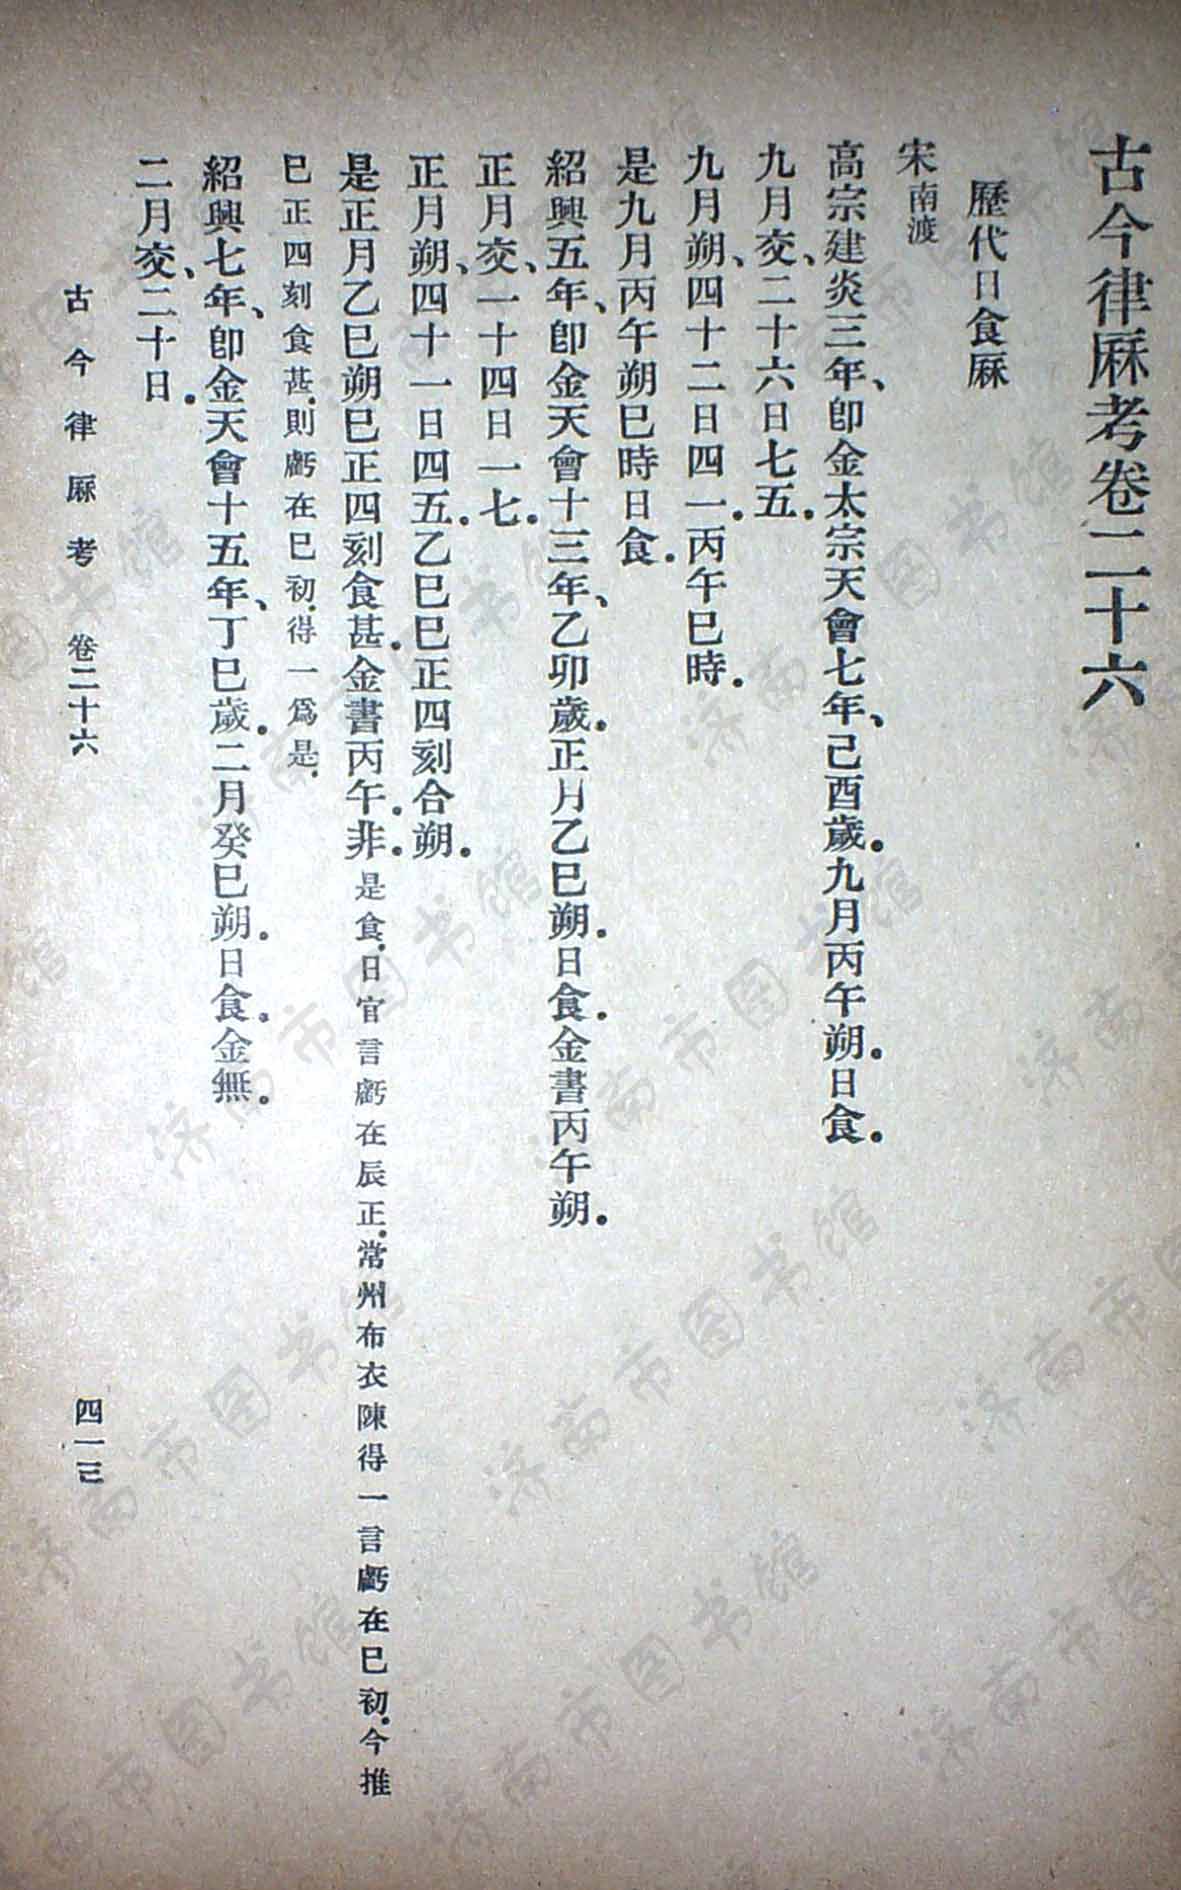 古今律厤考卷二十六
歷代日食厤
宋南渡
高宗建炎三年、卽金太宗天會七年、己酉歲。九月丙午朔。日食。
九月交、二十六日七五。
九月朔、四十二日四一。丙午巳時。
是九月丙午朔巳時日食。
紹興五年、卽金天會十三年、乙卯歲。正月乙巳朔。日食。金書丙午朔。
正月交、一十四日一七。
正月朔、四十一日四五。乙巳巳正四刻合朔。
是正月乙巳朔巳正四刻食甚。金書丙午。非。是食。日官言虧在辰正。常州布衣陳得一言虧在巳初。今推
巳正四刻食甚。則虧在巳初。得一爲是。
紹興七年、卽金天會十五年、丁巳歲。二月癸巳朔。日食。金無。
二月交、二十日。
古今律厤考 卷二十六
四一三
济南市图书馆